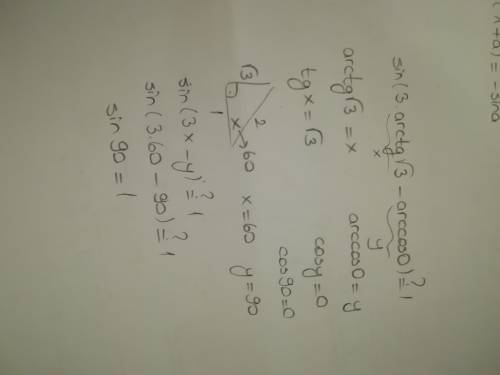 (π+a) = -sina
sin(3.arctg√3 - arccos0) ?= 1
x y
arctg√3 = x arccos0 = y
tg x = √3 cosy = 0
cos90 = 0
√3 2 1 x → 60 x = 60 y = 90
sin(3x - y) ?= 1
sin(3.60 - 90) ?= 1
sin 90 = 1